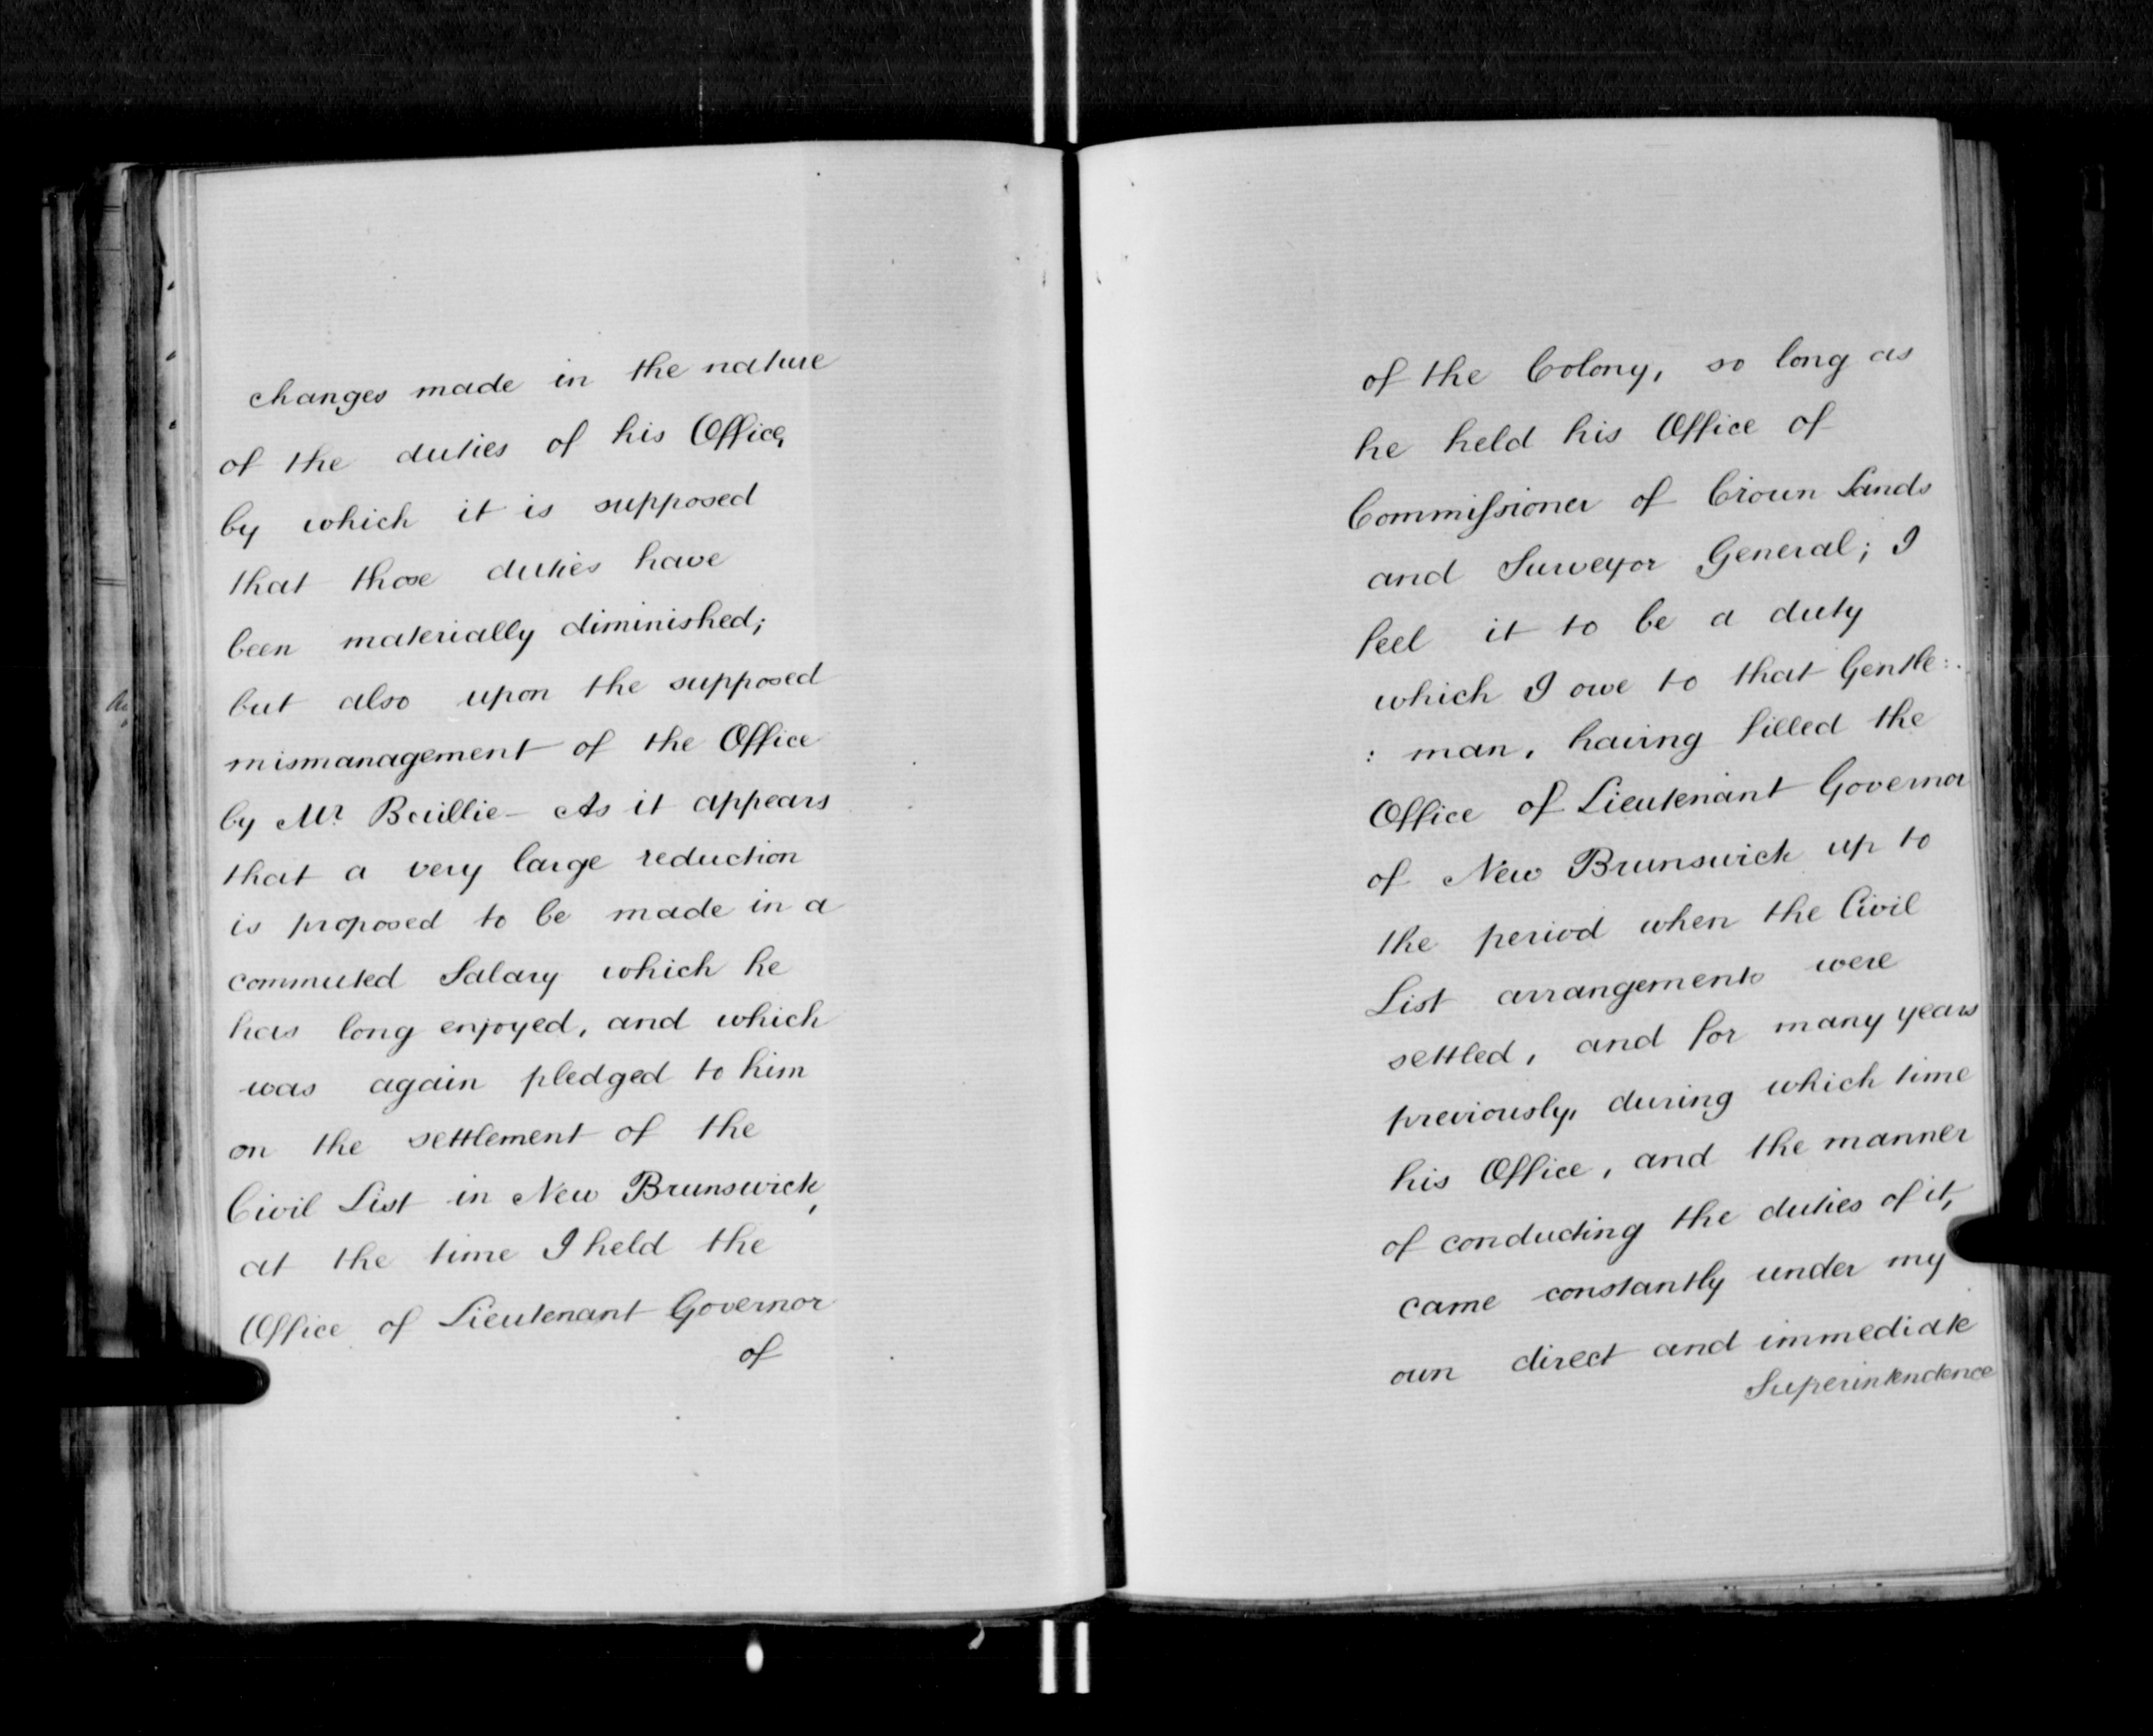 changes made in the nature
of the duties of his Office,
by which it is supposed
that those duties have
been materially diminished;
but also upon the supposed
mismanagement of the Office
by Mr Baillie – As it appears
that a very large reduction
is proposed to be made in a
commuted Salary which he
has long enjoyed, and which
was again pledged to him
on the settlement of the
Civil List in New Brunswick,
at the time I held the
Office of Lieutenant Governor
of
of the Colony, so long as
he held his Office of
Commissioner of Crown Lands
and Surveyor General; I
feel it to be a duty
which I owe to that Gentle:
: man, having filled the
Office of Lieutenant Governor
of New Brunswick up to
the period when the Civil
List arrangements were
settled, and for many years
previously, during which time
his Office, and the manner
of conducting the duties of it,
came constantly under my
own direct and immediate
Superintendence